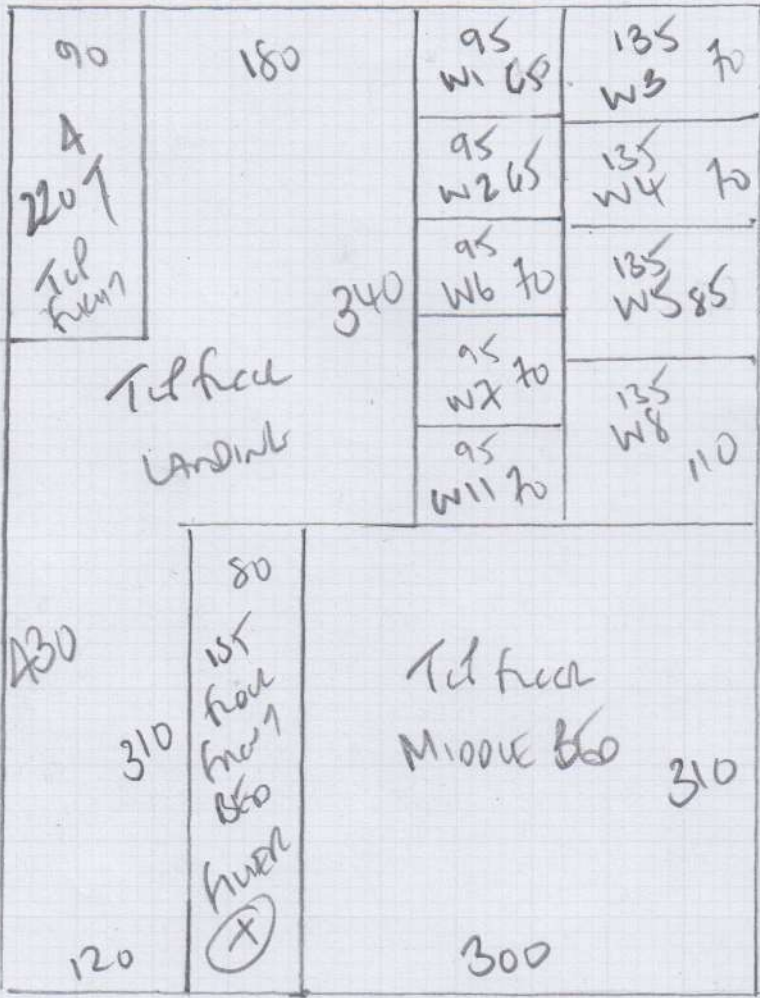 90
A
220 T
Top
front
180
340
Top floor
LANDING
430
310
120
95
W1 65
95
W2 65
95
W6 70
95
W7 70
95
W11 70
135
W3 70
135
W4 70
135
W5 85
135
W8
110
80
1st
floor
front
BED
X
Top floor
MIDDLE BED
310
300